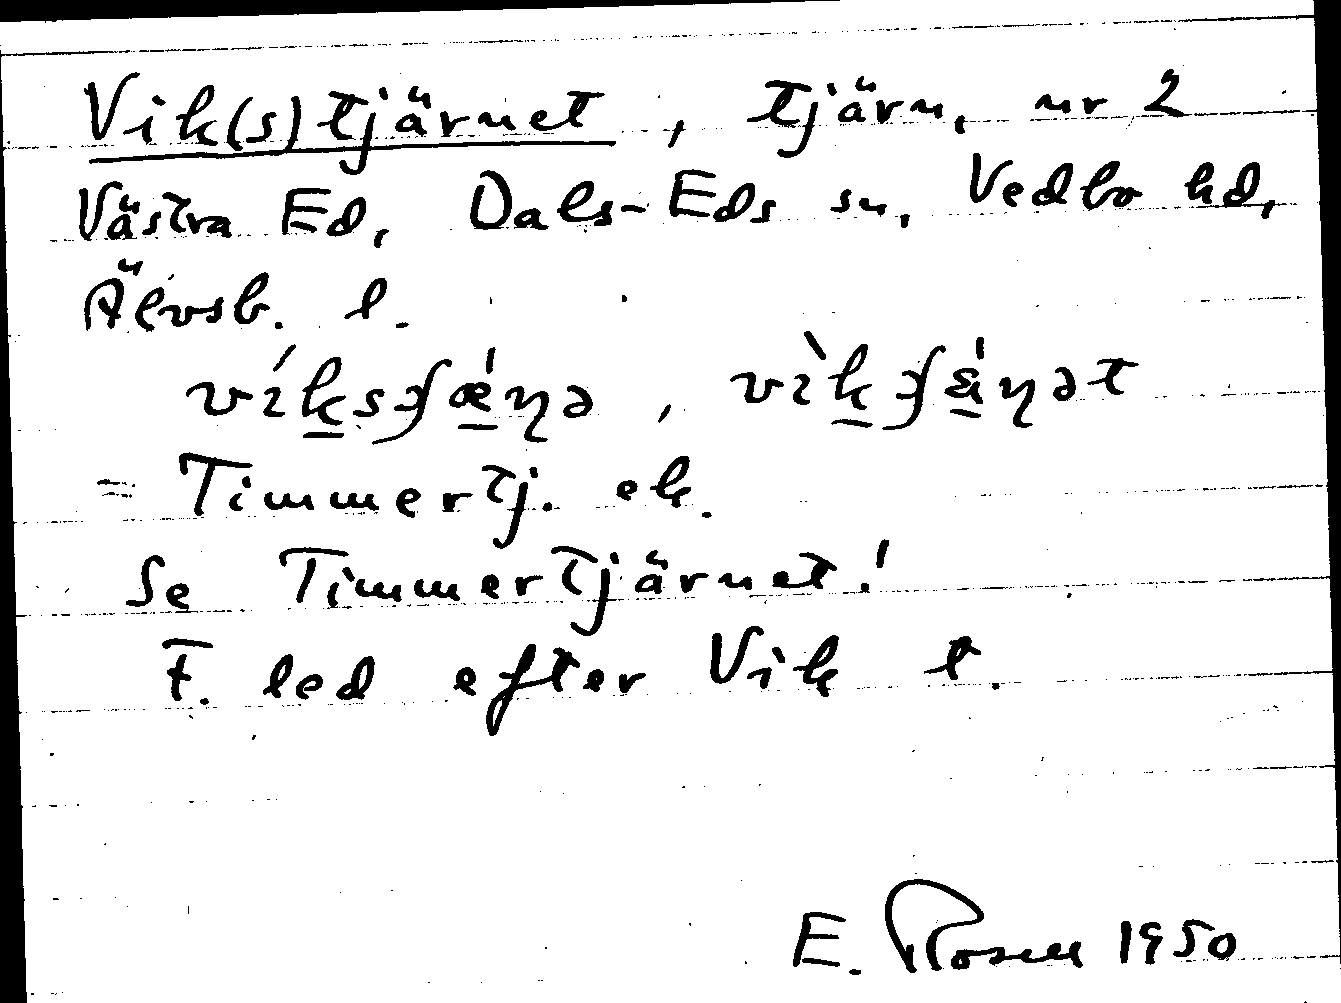 Vik(s)tjärnet, tjärn, nr 2
Västra Ed, Dals-Eds sn, Vedbo hd,
Älvsb. l.
= Timmertj. ek.
Se Timmertjärnet!
F. led efter Vik t.
E. Rosell 1950